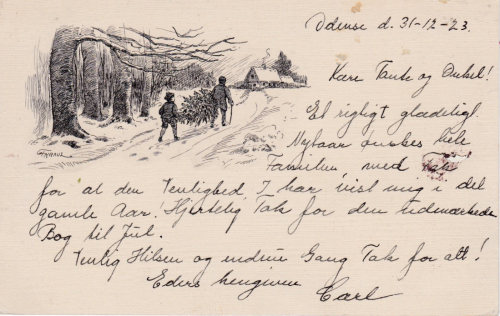 Odense d. 31-12-23.
Kære Tante og Onkel!
Et rigtigt glædeligt
Nytaar ønskes hele
Familien, med Tak
for al den Venlighed I har vist mig i det
gamle Aar! Hjertelig Tak for den udmærkede
Bog til Jul.
Venlig Hilsen og endnu Gang Tak for alt!
Eders hengivne
Carl